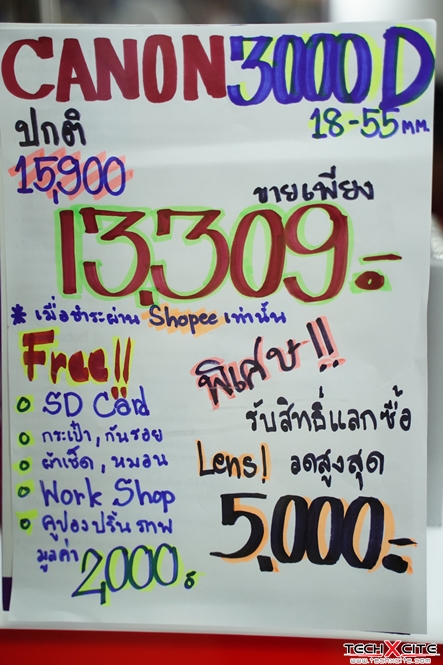 CANON 3000D
18-55 mm.
ปกติ
15,900
ขายเพียง
13,309.-
* เมื่อชำระผ่าน Shopee เท่านั้น
Free!!
SD Card
กระเป๋า, กันรอย
ผ้าเช็ด, หมอน
Work Shop
คูปองปริ้นภาพ
มูลค่า 2,000 ฿
พิเศษ!!
รับสิทธิ์แลกซื้อ
Lens! ลดสูงสุด
5,000.-
TECHXCITE
www.techxcite.com